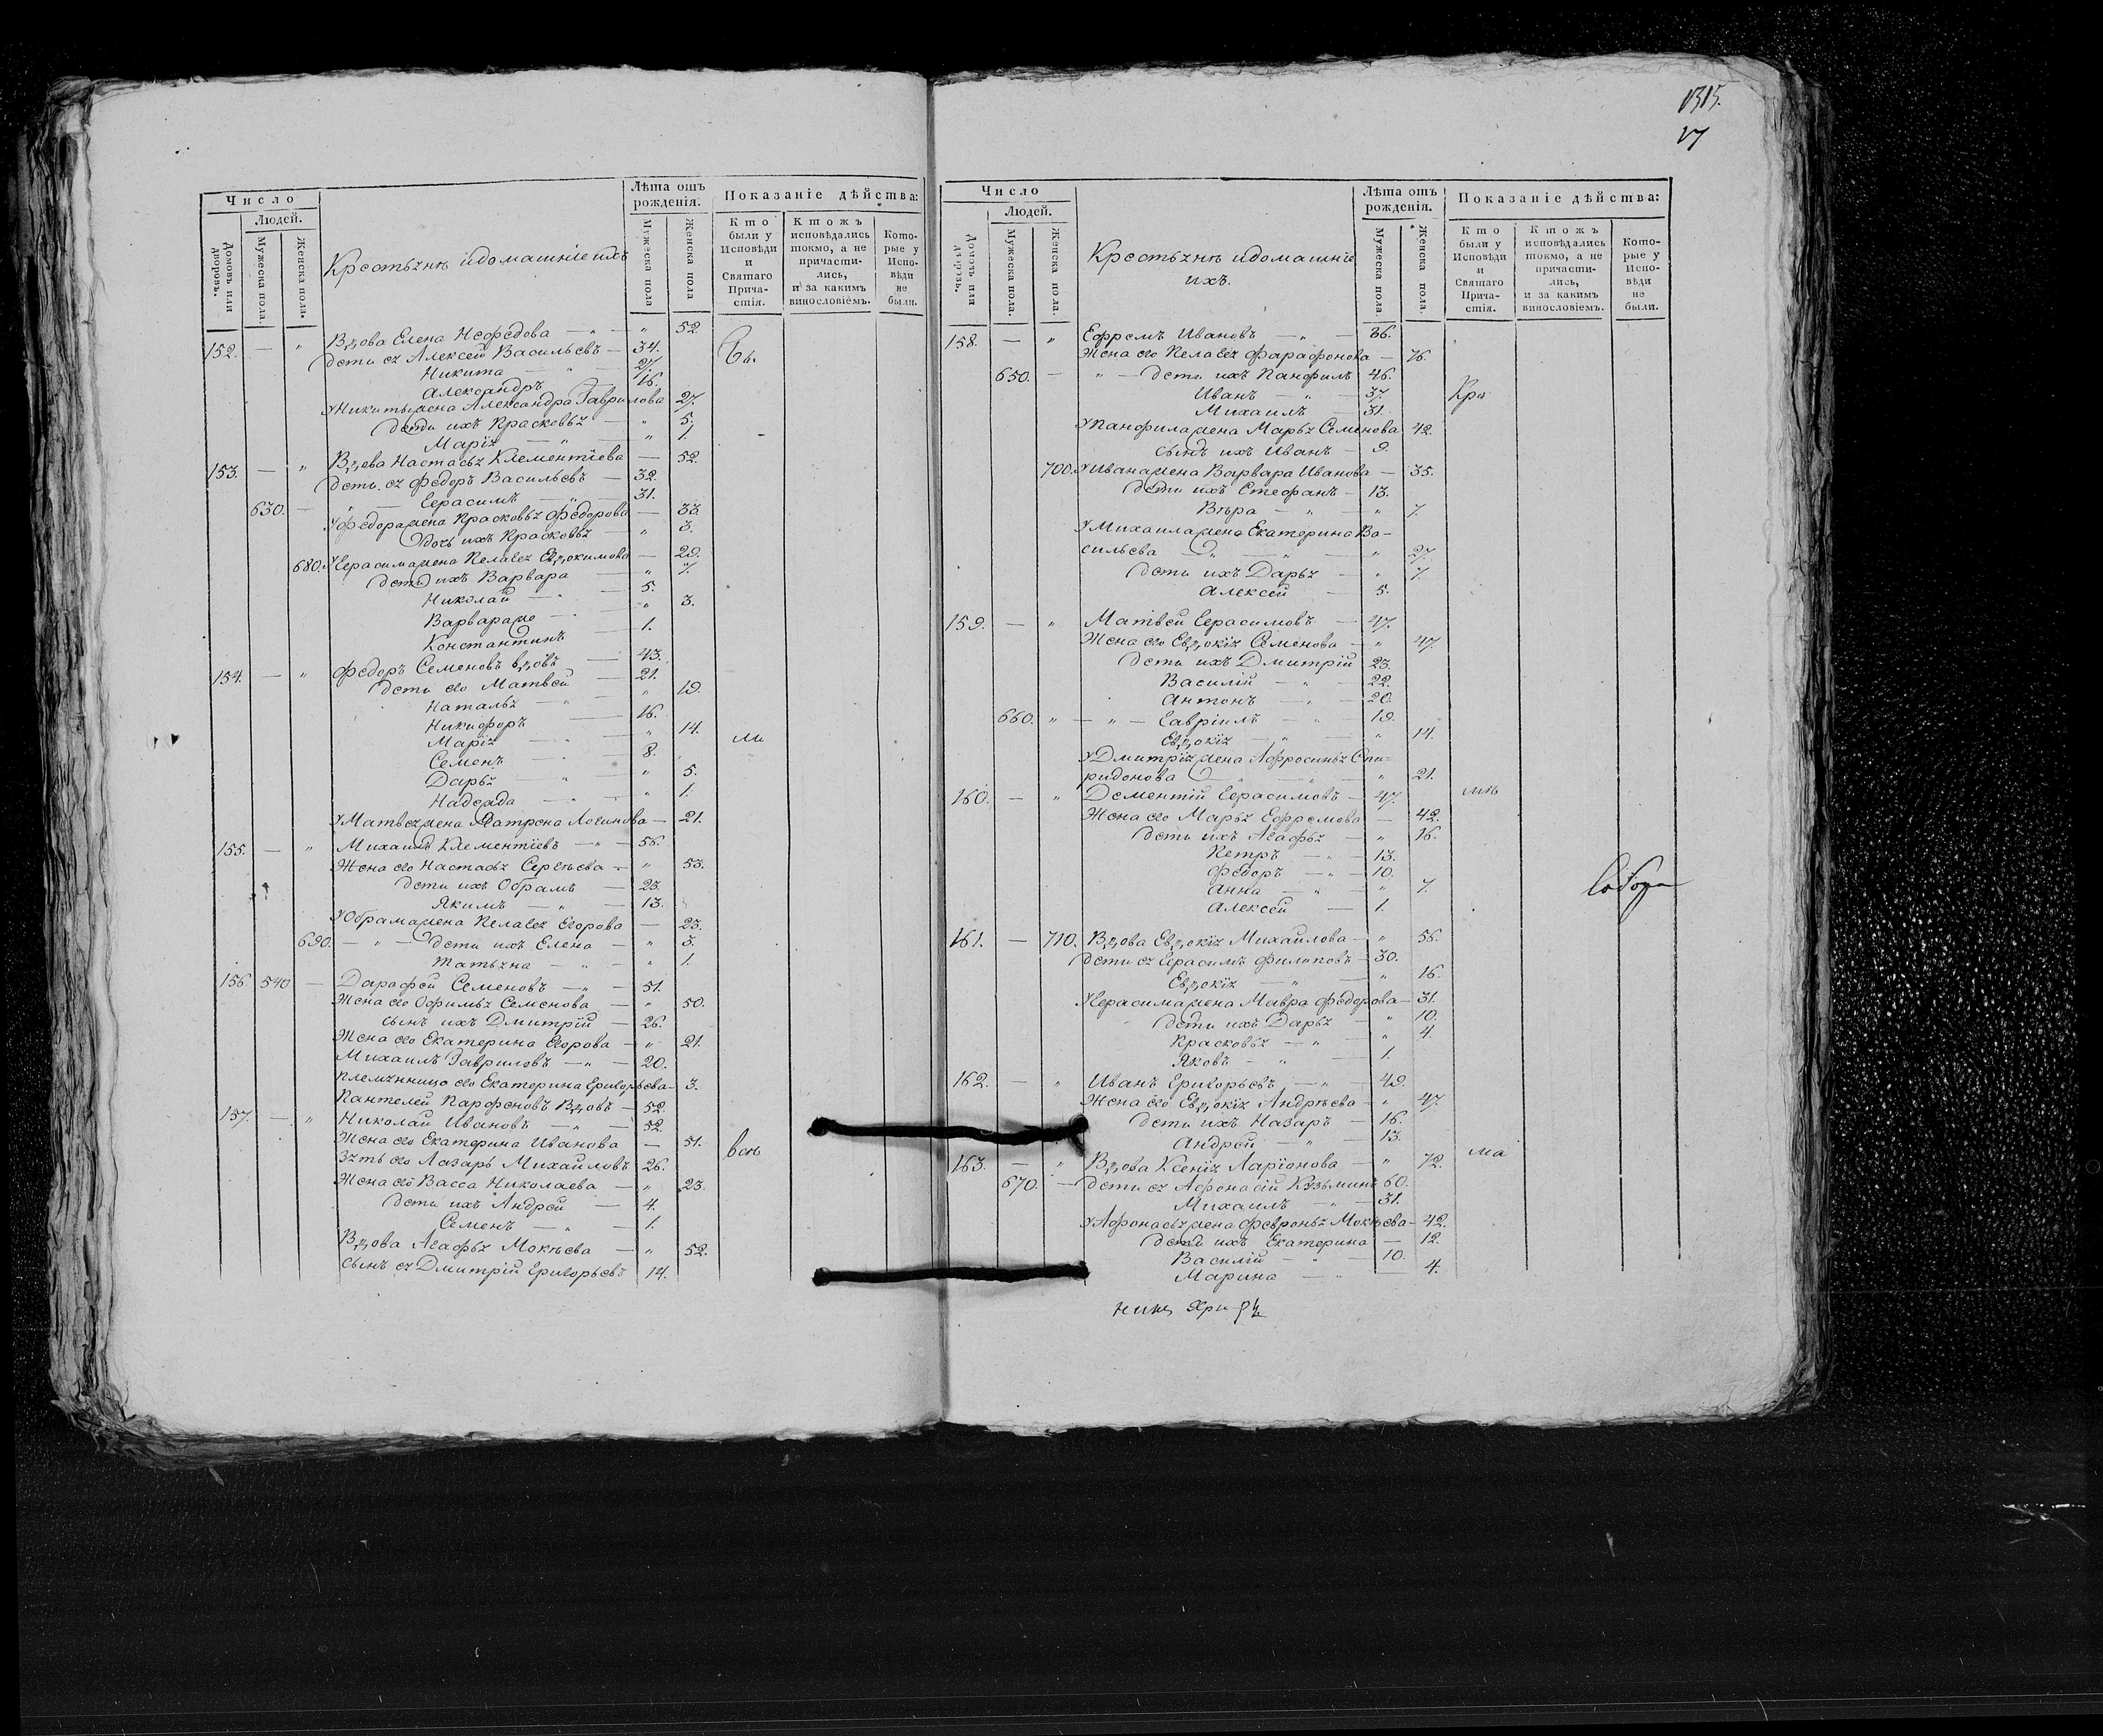 1315.
17
Число
Людей.
Домовъ или дворовъ.
Мужеска пола.
Женска пола.
Крестьянѣ идомашніе ихъ
Лѣта отъ рожденія.
Мужеска пола
Женска пола
Показаніе дѣйства:
Кто были у Исповѣди и Святаго Причастія.
Ктожъ исповѣдались токмо, а не причастились, и за какимъ винословіемъ.
Которые у Исповѣди не были.
152. — " Вдова Елена Нефедова — " — " 52.
Дети ея Алексей Васильевъ — 34.
Бы
Никита — " — 27.
Александръ 16.
УНикиты жена Александра Гаврилова 27.
Дети ихъ Прасковья — " 5.
Марія — " — " 1.
153. — " Вдова Настасья Клементіева — 52.
Дети ея Федоръ Васильевъ — 32.
630. — " — Герасимъ — " — 31.
УФедора жена Прасковья Федорова — 33.
Дочь ихъ Прасковья — " 3.
680. УГерасима жена Пелагея Евдокимова — 29.
Дети ихъ Варвара — " 7.
Николай — " — 5.
Варвара же — " — " 3.
Константинъ — 1.
154. — " Федоръ Семеновъ вдовъ — 43.
Дети его Матвей — 21.
Наталья — " — " 19.
Никифоръ — 16.
Марія — " — " 14.
ли
Семенъ — " 8.
Дарья — " — " 5.
Надежда — " — " 1.
УМатвея жена Матрена Логинова — 21.
155. — " Михаилъ Клементіевъ — " — 56.
Жена его Настасья Сергѣева — " 53.
Дети ихъ Обрамъ — 23.
Якимъ — " — 13.
УОбрама жена Пелагея Егорова — 23.
690. — " — Дети ихъ Елена — " 3.
Татьяна — " — " 1.
156 540 — Дарафей Семеновъ — " — 51.
Жена его Офимья Семенова — " 50.
Сынъ ихъ Дмитрій — 26.
Жена его Екатерина Егорова — " 21.
Михаилъ Гавриловъ — " — 20.
Племянница его Екатерина Григорьева — 3.
Пантелей Парфеновъ Вдовъ — 52.
157. — " Николай Ивановъ — " — 52.
Жена его Екатерина Иванова — 51.
всѣ
Зять его Лазарь Михайловъ 26.
Жена его Васса Николаева — " 23.
Дети ихъ Андрей — 4.
Семенъ — " — 1.
Вдова Агафья Мокѣева — " 52.
Сынъ ея Дмитрій Григорьевъ 14.
Число
Людей.
Домовъ или дворовъ.
Мужеска пола.
Женска пола.
Крестьянѣ идомашніе
ихъ.
Лѣта отъ рожденія.
Мужеска пола.
Женска пола.
Показаніе дѣйства:
Кто были у Исповѣди и Святаго Причастія.
Ктожъ исповѣдались токмо, а не причастились, и за какимъ винословіемъ.
Которые у Исповѣди не были.
158. — " Ефремъ Ивановъ — " — 86.
Жена его Пелагея Фарафонова — 76.
650. — " — Дети ихъ Панфилъ 46.
Иванъ — " — 37.
Михаилъ 31.
УПанфила жена Марья Семенова 42.
Сынъ ихъ Иванъ — 9.
700. УИвана жена Варвара Иванова — 35.
Дети ихъ Стефанъ — 13.
Вѣра — " — " 7.
УМихаила жена Екатерина Ва-
сильева — " — " 27.
Дети ихъ Дарья — " 7.
Алексей — 5.
159. — " Матвей Герасимовъ — 47.
Жена его Евдокія Семенова — " 47.
Дети ихъ Дмитрій 23.
Василій — " — 22.
Антонъ — " — 20.
660. " — " — Гавріилъ — " 19.
Евдокія — " — " 14.
УДмитрія жена Афросинья Спи-
ридонова — " — " 21.
160. — " Дементій Герасимовъ — 47.
Жена его Марья Ефремова — 42.
Дети ихъ Агафья — " 16.
Петръ — " — 13.
Федоръ — " — 10.
Анна — " — " 7.
Алексей — 1.
161. — 710. Вдова Евдокія Михайлова — " 56.
Дети ея Герасимъ Филиповъ — 30.
Евдокія — " — " 16.
УГерасима жена Мавра Федорова — 31.
Дети ихъ Дарья — " 10.
Прасковья — " — " 4.
Яковъ — " — 1.
162. — " Иванъ Григорьевъ — " 49.
Жена его Евдокія Андрѣева — " 47.
Дети ихъ Назаръ — 16.
Андрей — " 13.
163. — " Вдова Ксенія Ларіонова — " 72.
670. — Дети ея Афонасій Кузьминъ 60.
Михаилъ — " 31.
УАфонасья жена Февронья Мокѣева — 42.
Дети ихъ Екатерина — 12.
Василій — " — 10.
Марина — " — 4.